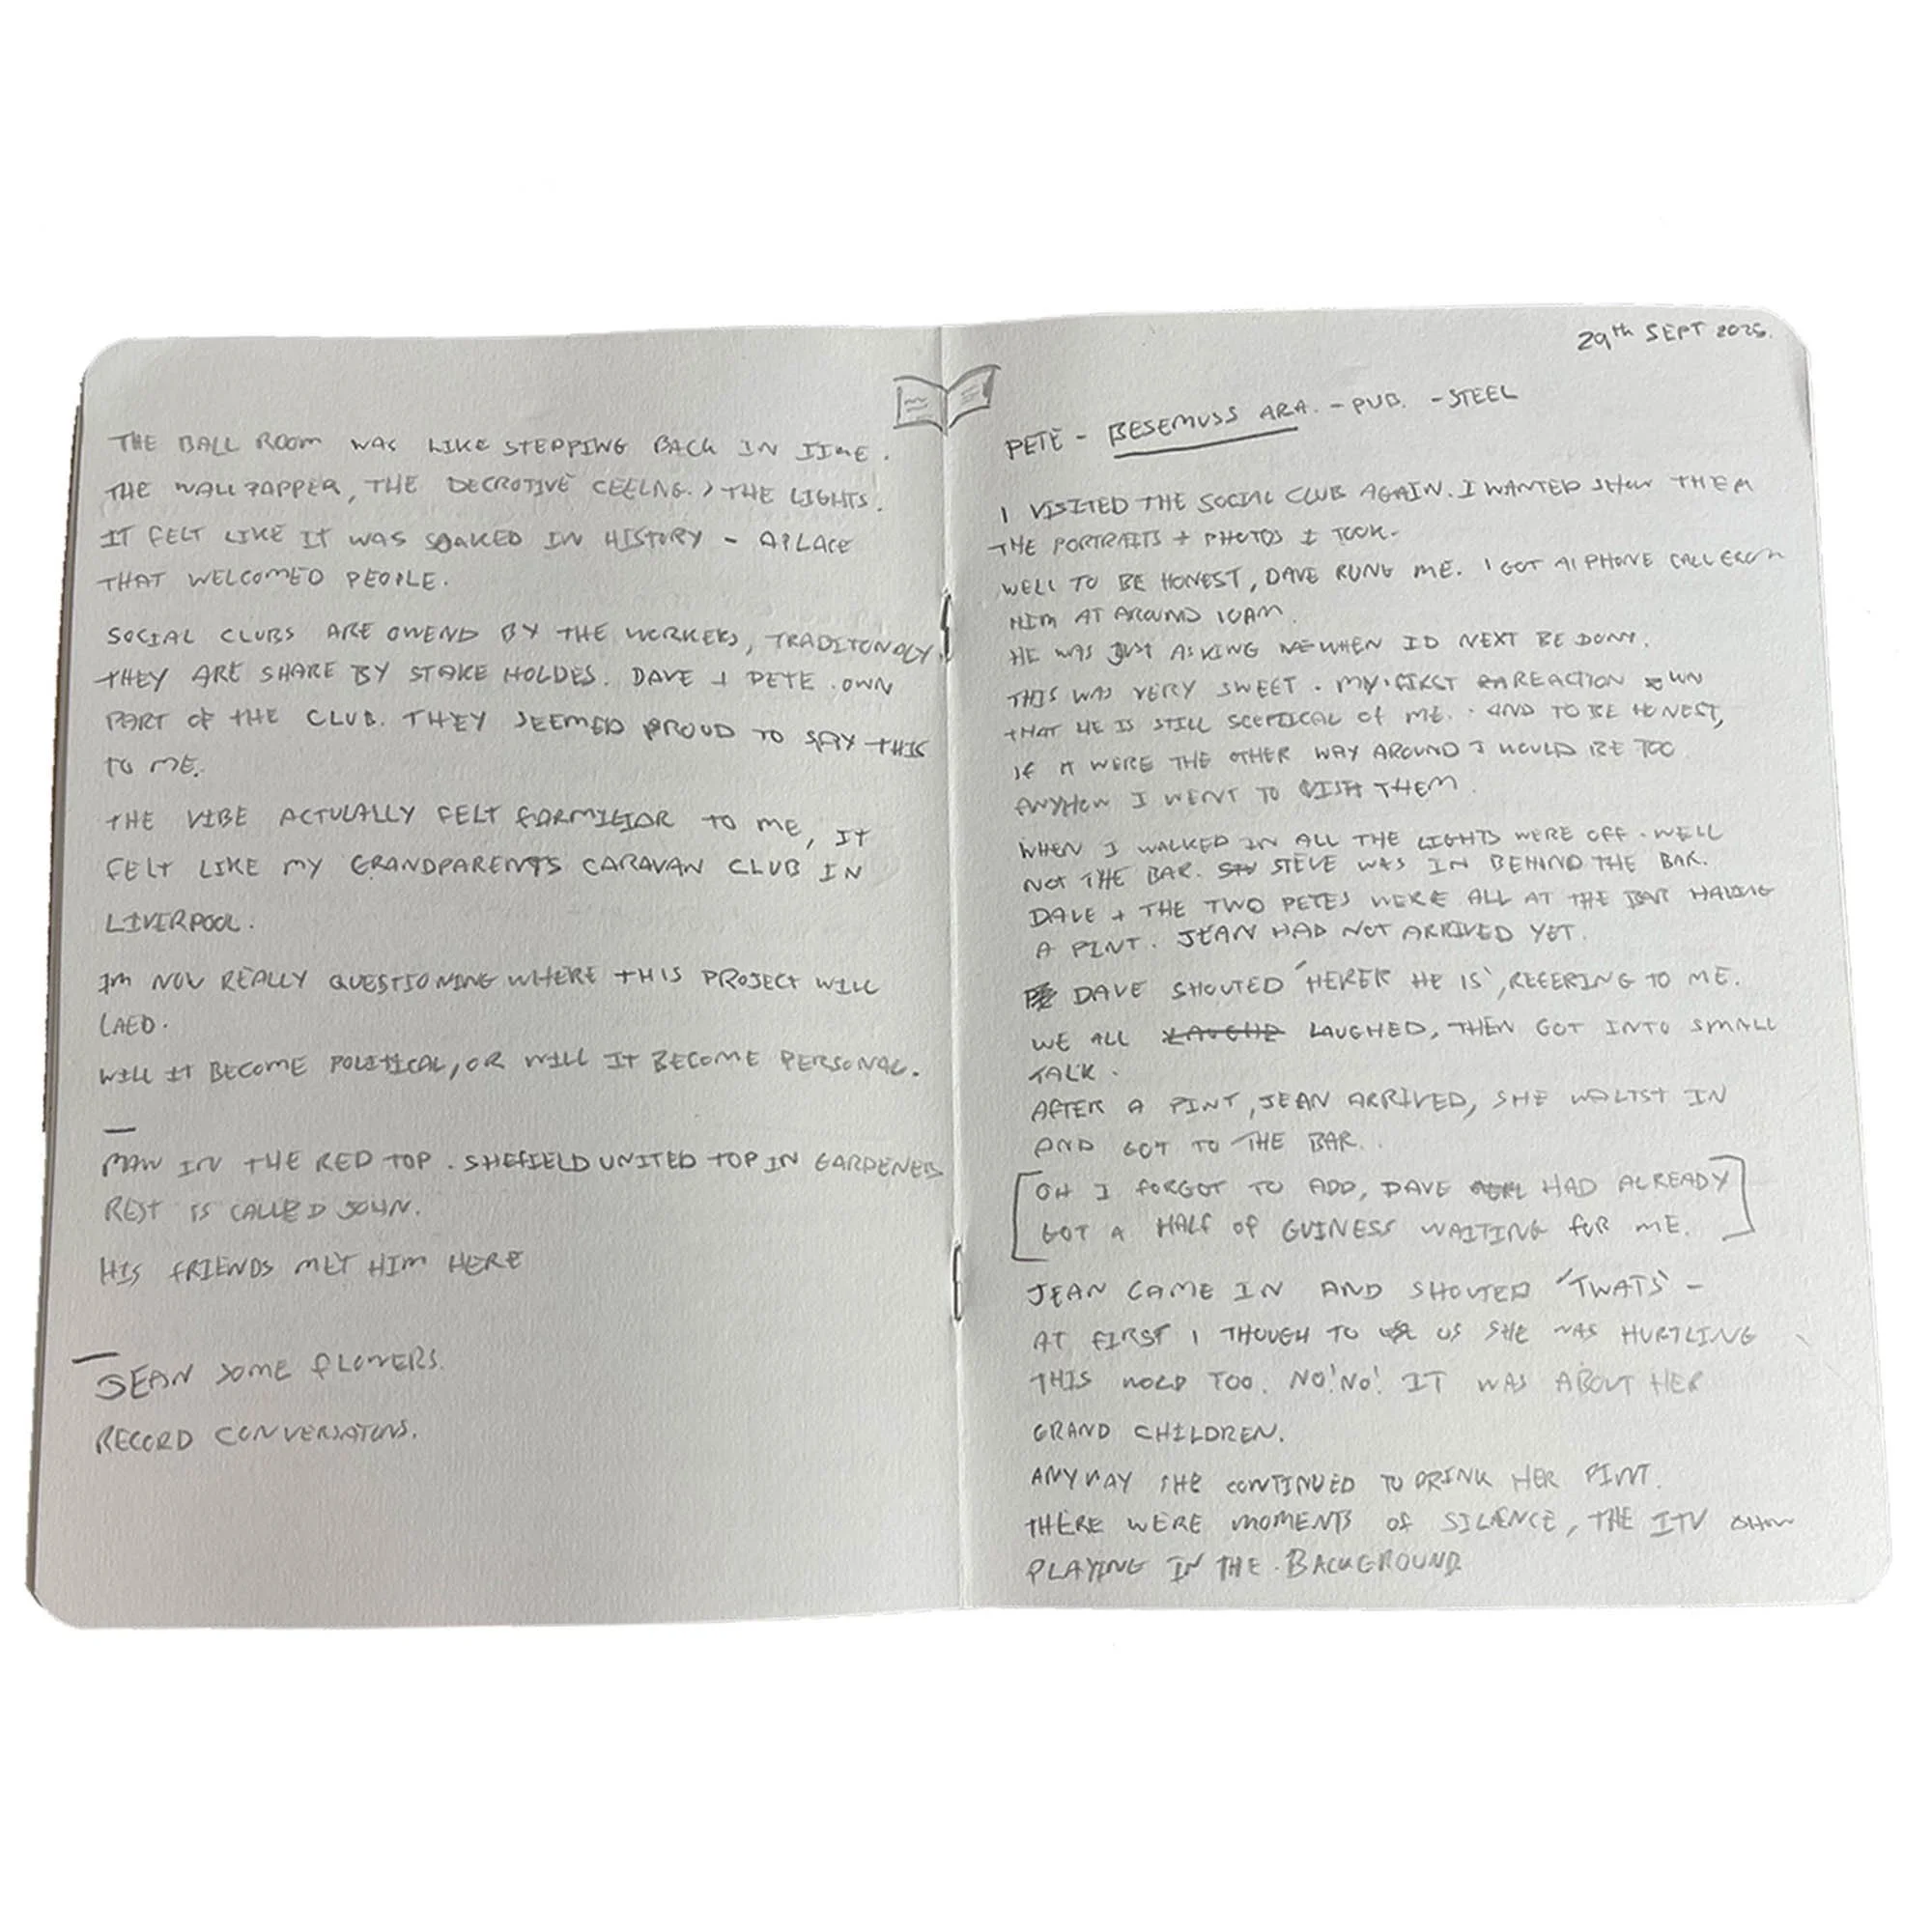 THE BALL ROOM WAS LIKE STEPPING BACK IN TIME.
THE WALLPAPPER, THE DECROTIVE CEELNG., THE LIGHTS.
IT FELT LIKE IT WAS SOAKED IN HISTORY - A PLACE
THAT WELCOMED PEOPLE.
SOCIAL CLUBS ARE OWEND BY THE WORKERS, TRADITONOLY,
THEY ARE SHARE BY STAKE HOLDES. DAVE + PETE. OWN
PART OF THE CLUB. THEY SEEMED PROUD TO SAY THIS
TO ME.
THE VIBE ACTULALLY FELT FORMILIOR TO ME, IT
FELT LIKE MY GRANDPARENTS CARAVAN CLUB IN
LIVERPOOL.
IM NOW REALLY QUESTIONING WHERE THIS PROJECT WILL
LAED.
WILL IT BECOME POLITICAL, OR WILL IT BECOME PERSONAL.
—
MAN IN THE RED TOP. SHEFIELD UNITED TOP IN GARDENERS
REST IS CALLED JOHN.
HIS FRIENDS MET HIM HERE
—
JEAN SOME FLOWERS.
RECORD CONVERSATONS.
29th SEPT 2025.
PETE - BESEMUSS ARA. - PUB. - STEEL
I VISITED THE SOCIAL CLUB AGAIN. I WANTED SHOW THEM
THE PORTRAITS + PHOTOS I TOOK.
WELL TO BE HONEST, DAVE RUNG ME. I GOT A PHONE CALL FROM
HIM AT AROUND 10AM.
HE WAS JUST ASKING ME WHEN ID NEXT BE DONY.
THIS WAS VERY SWEET. MY FIRST REACTION
THAT HE IS STILL SCEPTICAL OF ME. AND TO BE HONEST,
IF IT WERE THE OTHER WAY AROUND I WOULD BE TOO
ANYHOW I WENT TO VISIT THEM.
WHEN I WALKED IN ALL THE LIGHTS WERE OFF. WELL
NOT THE BAR. STEVE WAS IN BEHIND THE BAR.
DAVE + THE TWO PETES WERE ALL AT THE BAR HAVING
A PINT. JEAN HAD NOT ARRIVED YET.
DAVE SHOUTED 'HERER HE IS', REFERING TO ME.
WE ALL LAUGHED, THEN GOT INTO SMALL
TALK.
AFTER A PINT, JEAN ARRIVED, SHE WALTST IN
AND GOT TO THE BAR.
[OH I FORGOT TO ADD, DAVE HAD ALREADY
GOT A HALF OF GUINESS WAITING FOR ME.]
JEAN CAME IN AND SHOUTED 'TWATS' -
AT FIRST I THOUGH TO US SHE WAS HURTLING
THIS WORD TOO. NO! NO! IT WAS ABOUT HER
GRAND CHILDREN.
ANYWAY SHE CONTINUED TO DRINK HER PINT.
THERE WERE MOMENTS OF SILENCE, THE ITV SHOW
PLAYING IN THE BACKGROUND